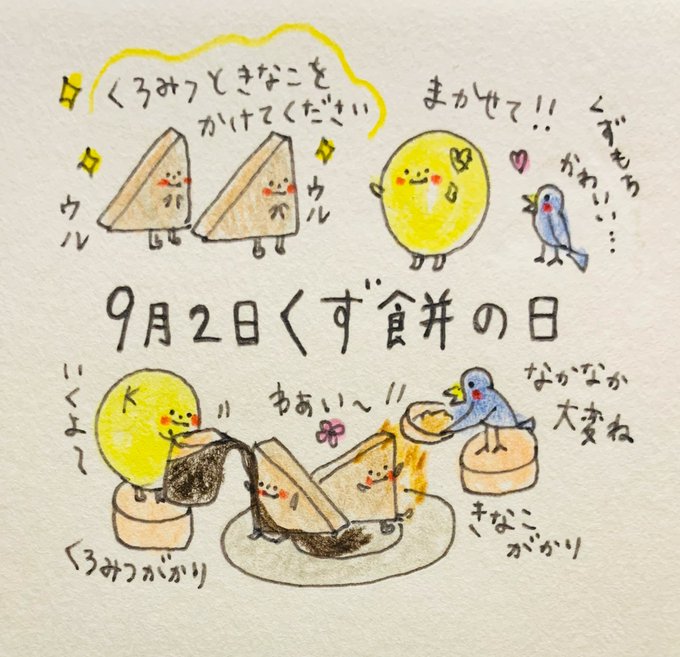 くろみつときなこを
かけてください
ウル
ウル
まかせて!!
くずもち
かわいい…
9月2日くず餅の日
いくよて
K
わあい〜!!
なかなか
大変ね
くろみつがかり
きなこ
がかり